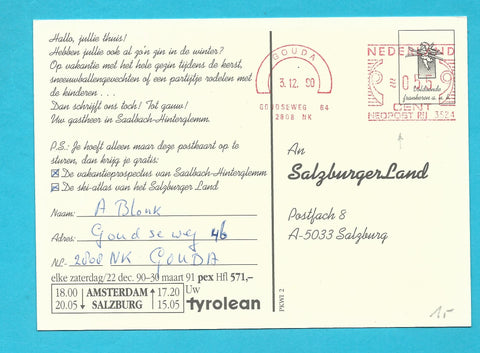 Hallo, jullie thuis!
Hebben jullie ook al zo'n zin in de winter?
Op vakantie met het hele gezin tijdens de kerst,
sneeuwballengevechten of een partijtje rodelen met
de kinderen . . .
Dan schrijft ons toch! Tot gauw!
Uw gastheer in Saalbach-Hinterglemm
P.S.: Je hoeft alleen maar deze postkaart op te
sturen, dan krijg je gratis:
De vakantieprospectus van Saalbach-Hinterglemm
De ski-atlas van het Salzburger Land
Naam: A Blonk
Adres: Goudseweg 46
NL- 2808 NK GOUDA
elke zaterdag/22 dec. 90–30 maart 91 pex Hfl 571,–
18.00 AMSTERDAM 17.20
20.05 SALZBURG 15.05
Uw
tyrolean
PKWE 2
GOUDA
3.12. 90
GOUDSEWEG 84
2808 NK
NEDERLAND
CENT
NEOPOST RN 3524
frankeren a.u.b.
An
SalzburgerLand
Postfach 8
A-5033 Salzburg
1,-